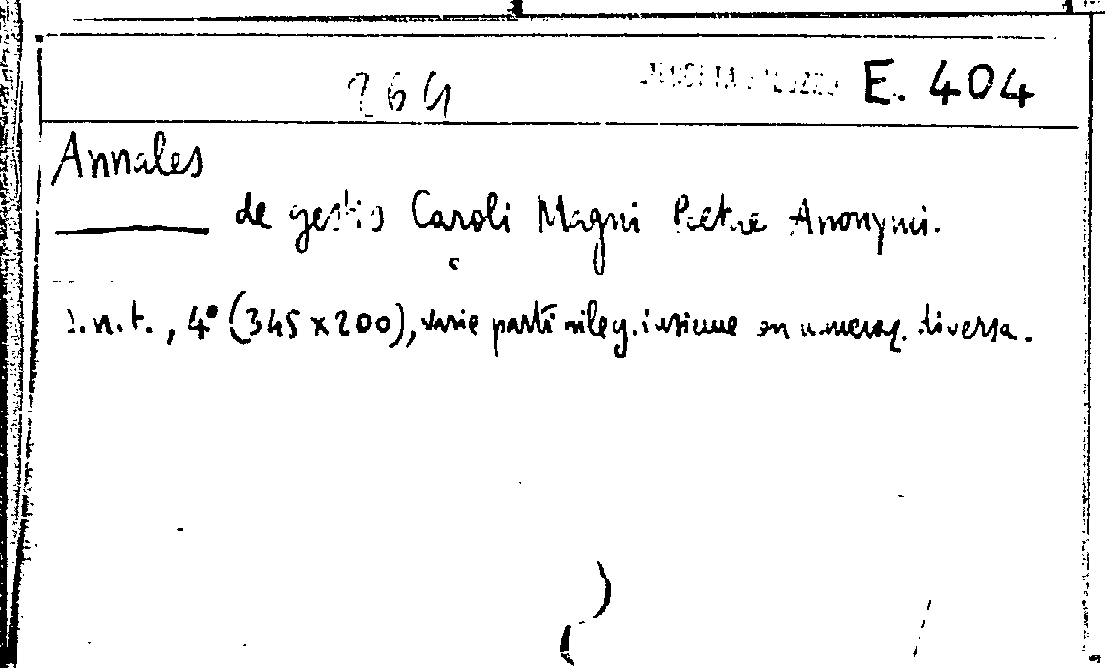 264 E. 404
Annales
de gestis Caroli Magni Poetae Anonymi.
s.n.t., 4° (345 x 200), varie parti rileg. insieme con numeraz. diversa.